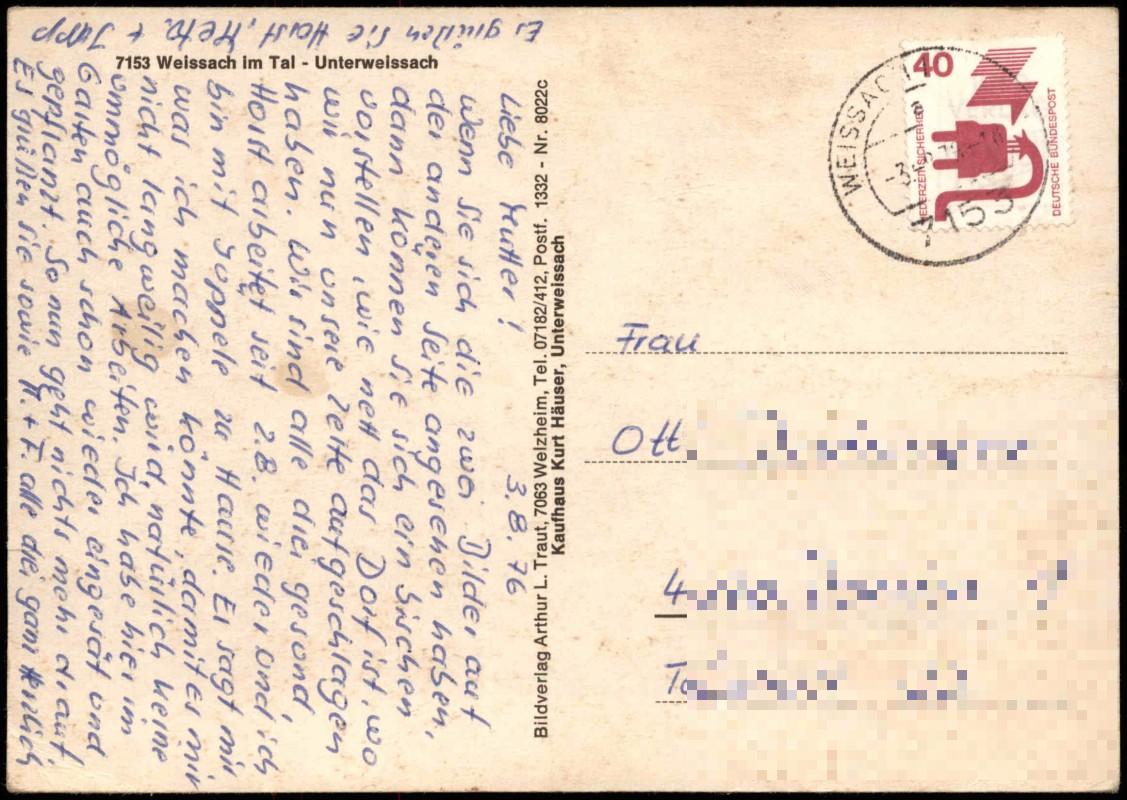 7153 Weissach im Tal - Unterweissach
3.8.76
Liebe Mutter!
Wenn sie sich die zwei Bilder auf
der anderen Seite angesehen haben,
dann können sie sich ein bischen
vorstellen, wie nett das Dorf ist, wo
wir nun unsere Zelte aufgeschlagen
haben. Wir sind alle drei gesond,
Horst arbeitet seit 2.8. wieder und ich
bin mit Jüppele zu Hause. Er sagt mir
was ich machen könnte, damit es mir
nicht langweilig wird, natürlich keine
ummögliche Arbeiten. Ich habe hier im
Garten auch schon wieder eingesät und
gepflanzt. So nun geht nichts mehr drauf,
Es grüßen sie sowie H. + F. alle drei ganz herzlich
Es grüßen sie Horst, + Jupp
Bildverlag Arthur L. Traut, 7063 Welzheim, Tel. 07182/412, Postf. 1332 - Nr. 8022c
Kaufhaus Kurt Häuser, Unterweissach
40
JEDERZEIT SICHERHEIT
DEUTSCHE BUNDESPOST
WEISSACH
7153
Frau
Ott
4